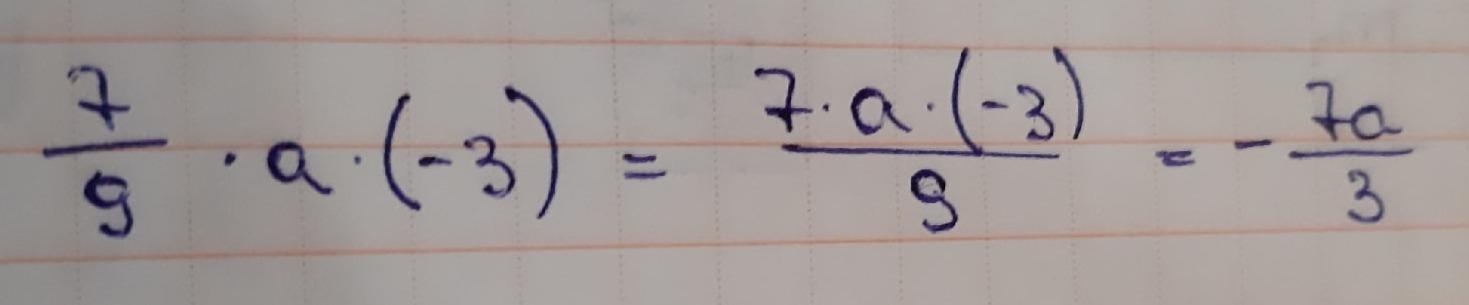 7/9 · a · (-3) = 7·a·(-3)/9 = - 7a/3